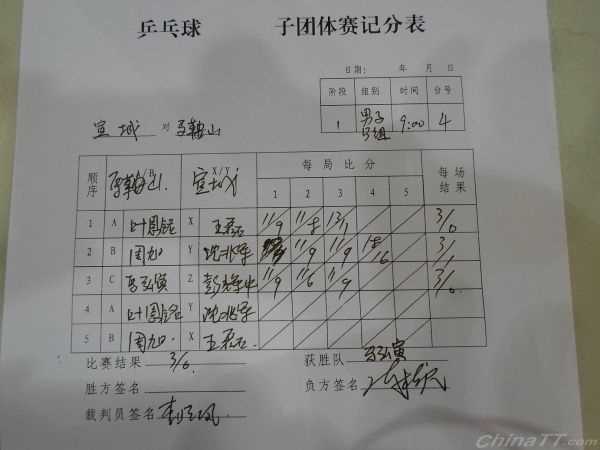 乒乓球 子团体赛记分表
日期: 年 月 日
阶段 组别 时间 台号
1 男子 9:00 4
宣城 对 马鞍山
顺序 马鞍山 A/B 宣城 X/Y 每局比分 每场结果
1 2 3 4 5
1 A 叶国铭 X 王磊 11/9 11/8 13/11 3/0
2 B 周旭 Y 沈兆军 11/9 11/9 18/16 3/1
3 C 马弘演 Z 11/9 11/6 11/9 3/0
4 A 叶国铭 Y 沈兆军
5 B 周旭 X 王磊
比赛结果 3/0 获胜队 马弘演
胜方签名 负方签名
裁判员签名
ChinaTT.com